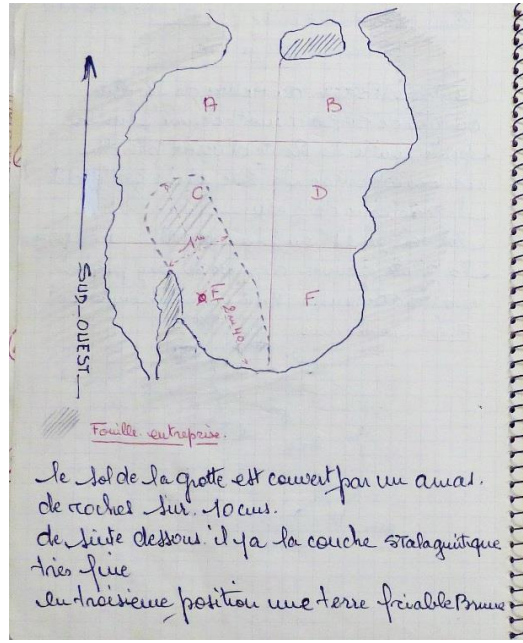 A
B
C
D
1m
E
2m40
F
SUD-OUEST
Fouille entreprise.
le sol de la grotte est couvert par un amas.
de roches sur 10 cms.
de suite dessous il y a la couche stalagmitique
très fine
en troisième position une terre friable Brune